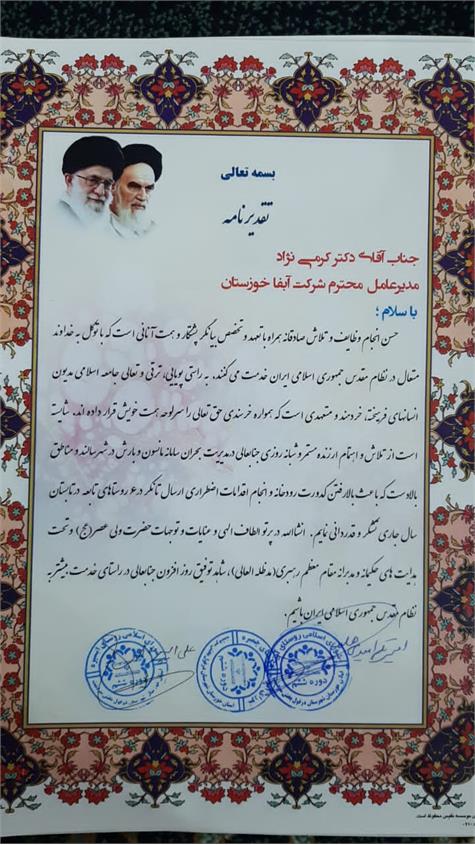 بسمه تعالی
تقدیرنامه
جناب آقای دکتر کرمی نژاد
مدیرعامل محترم شرکت آبفا خوزستان
با سلام ؛
حسن انجام وظایف و تلاش صادقانه همراه با تعهد و تخصص بیانگر پشتکار و همت آنانی است که با توکل به خداوند
متعال در نظام مقدس جمهوری اسلامی ایران خدمت می کنند. به راستی پویایی، ترقی و تعالی جامعه اسلامی مدیون
انسانهای فرهیخته، خردمند و متعهدی است که همواره خرسندی حق تعالی را سرلوحه همت خویش قرار داده اند. شایسته
است از تلاش و اهتمام ارزنده مستمر و شبانه روزی جنابعالی در مدیریت بحران سامانه مانسون و بارش در شهر سالند و مناطق
بالادست که باعث بالا رفتن کدورت رودخانه و انجام اقدامات اضطراری ارسال تانکر در ۶ روستاهای تابعه در تابستان
سال جاری تشکر و قدردانی نمایم. انشاالله در پرتو الطاف الهی و عنایات و توجهات حضرت ولی عصر(عج) و تحت
هدایت های حکیمانه و مدبرانه مقام معظم رهبری(مدظله العالی)، شاهد توفیق روز افزون جنابعالی در راستای خدمت بیشتر به
نظام مقدس جمهوری اسلامی ایران باشیم.
شورای اسلامی روستای
دوره ششم
شورای اسلامی روستای
دوره ششم